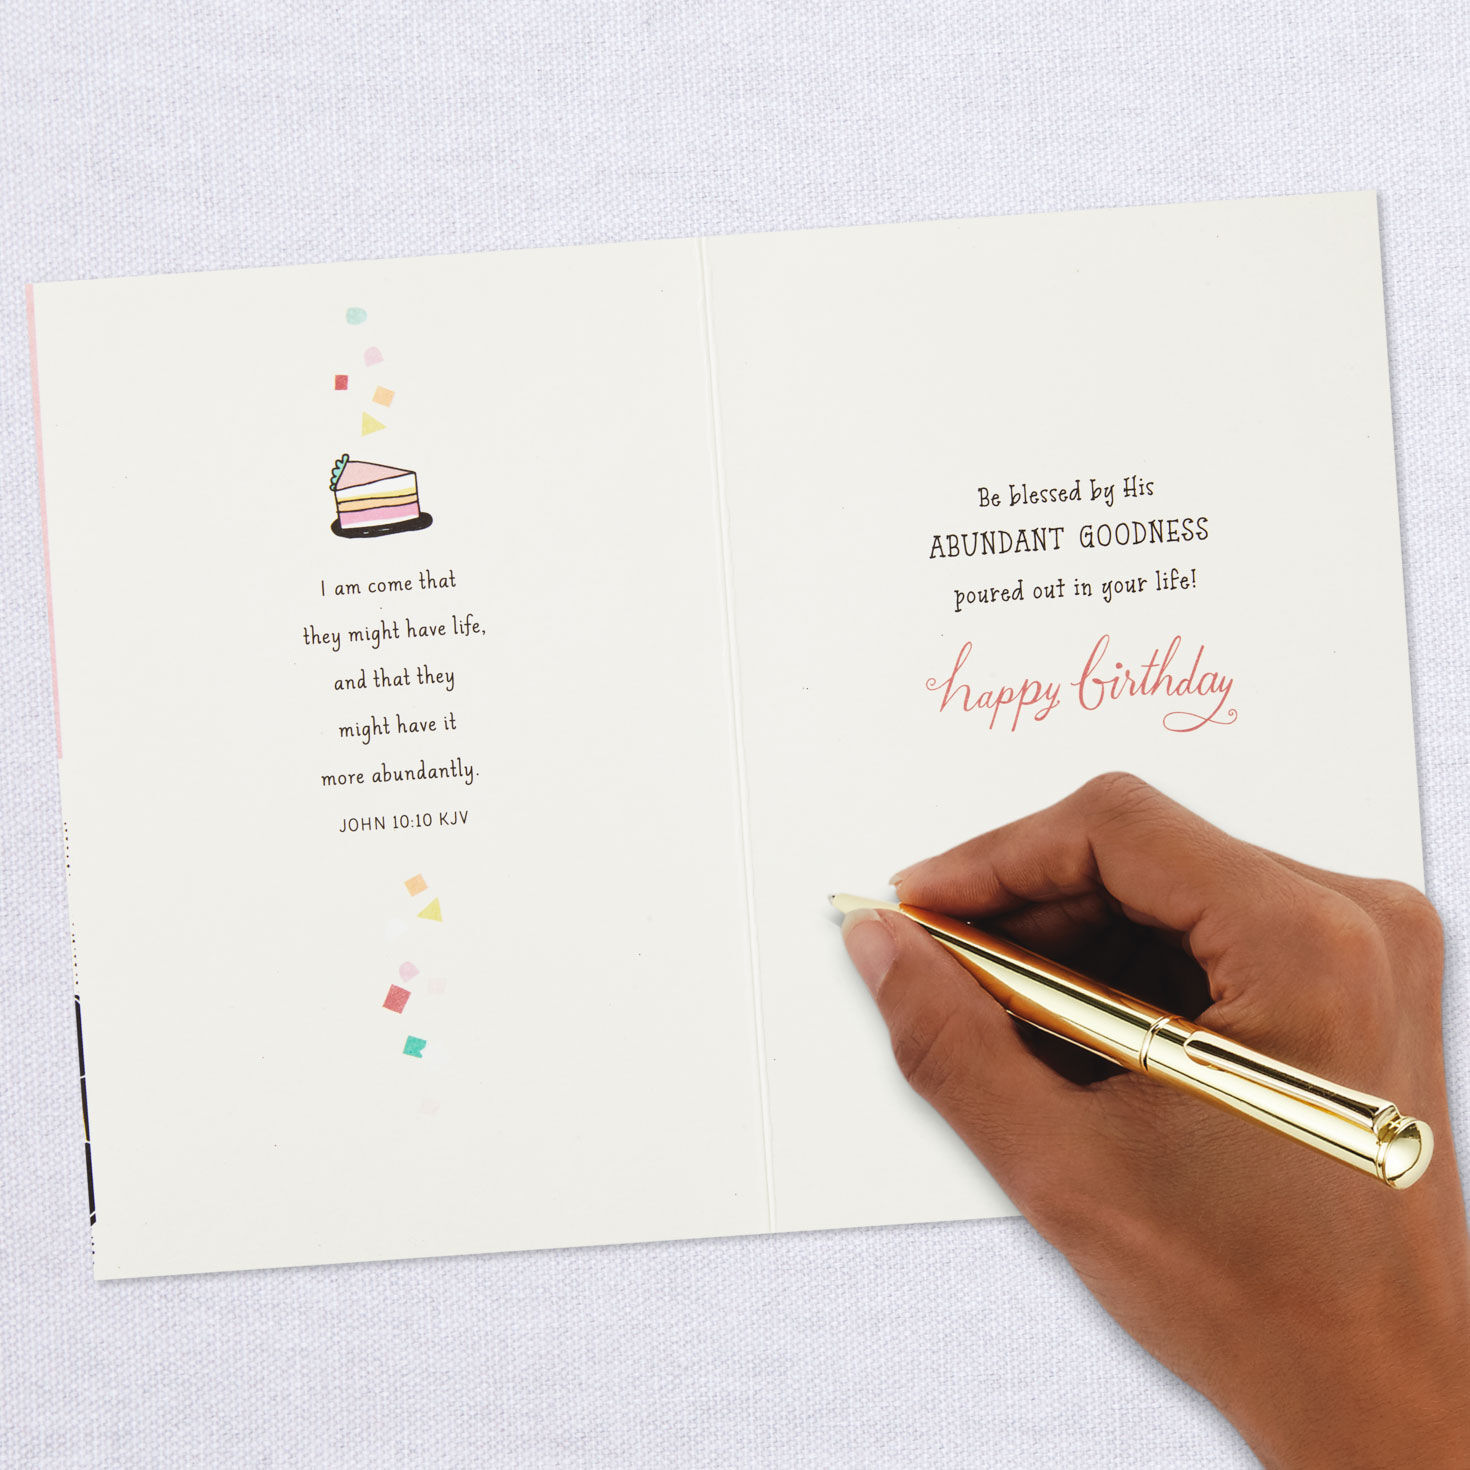 I am come that
they might have life,
and that they
might have it
more abundantly.
JOHN 10:10 KJV
Be blessed by His
ABUNDANT GOODNESS
poured out in your life!
happy birthday